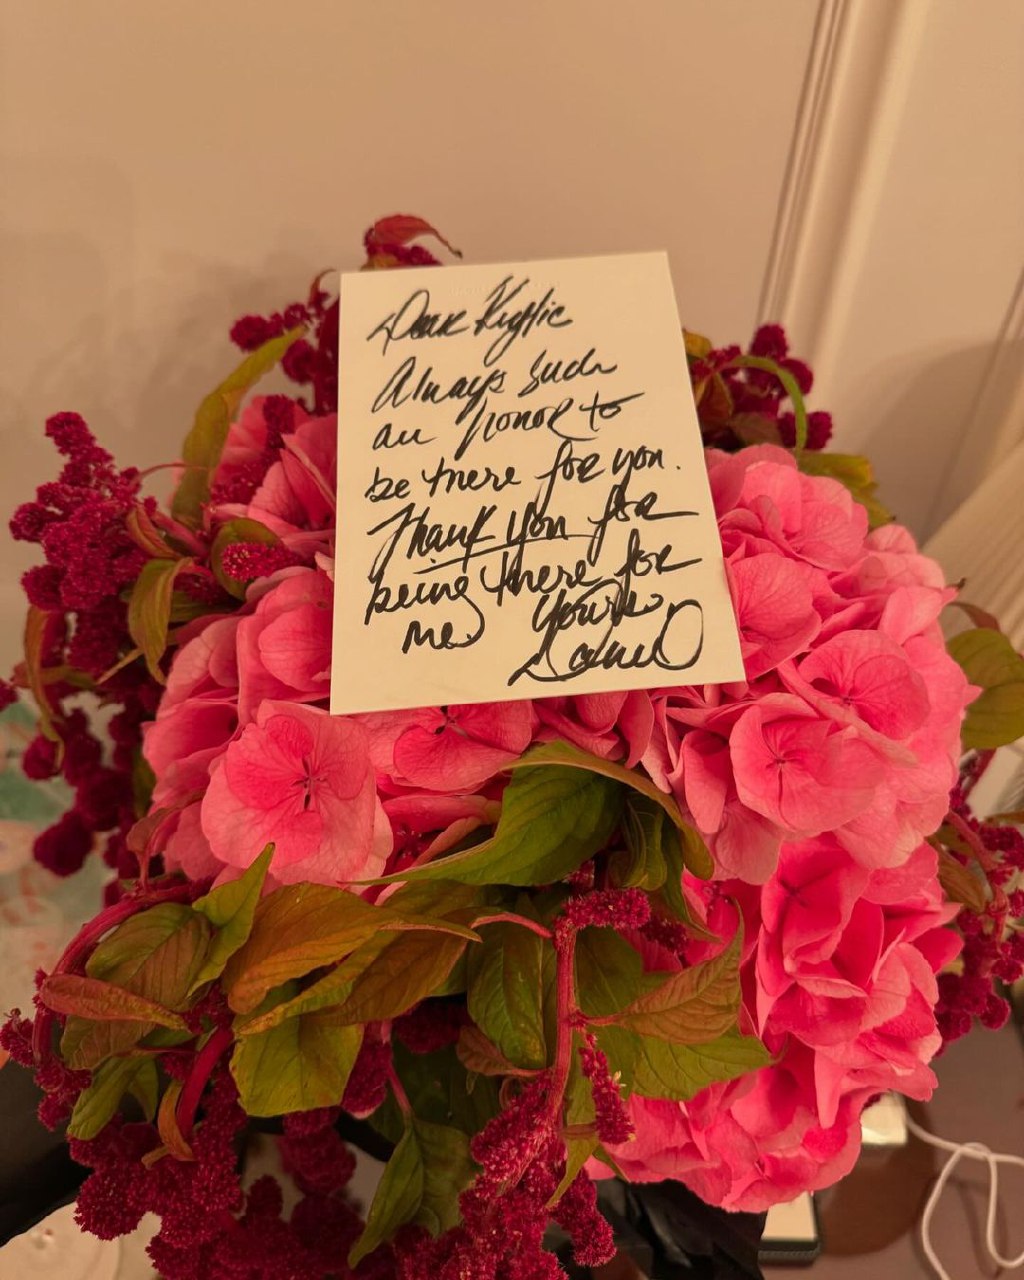 Dear Kyllie
Always such
an honor to
be there for you.
Thank you for
being there for
me. Yours
Daniel